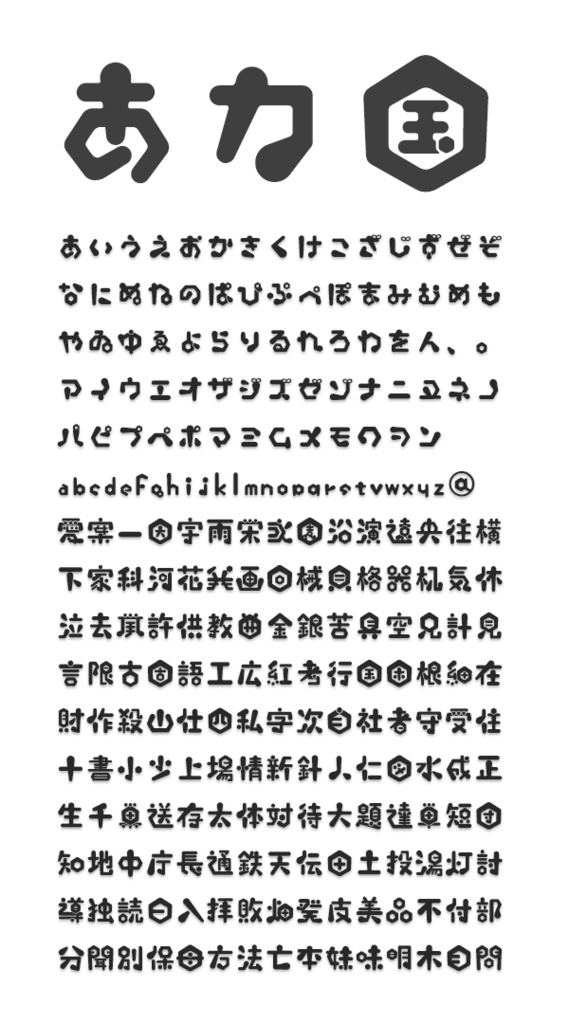 あカ国
あいうえおかさくけこざじずぜぞ
なにぬねのばぴぷぺぽまみむめも
やゐゆゑよらりるれろわをん、。
アイウエオザジズゼゾナニヌネノ
パピプペポマミムメモワヲン
abcdeFghijklmnopqrstvwxyz@
愛案一因宇雨栄或沿演遠央往横
下家科河花画械貝格器机気休
泣去許供教金銀苦具空兄計見
言限古固語工広紅考行国困根細在
財作殺山仕四私字次自社者守受住
十書小少上場情新針人仁水成正
生千送存太体対待大題達単短
知地中庁長通鉄天伝田土投湯灯討
導独読日入拝敗畑発皮美品不付部
分聞別保母方法亡本妹味明木目問